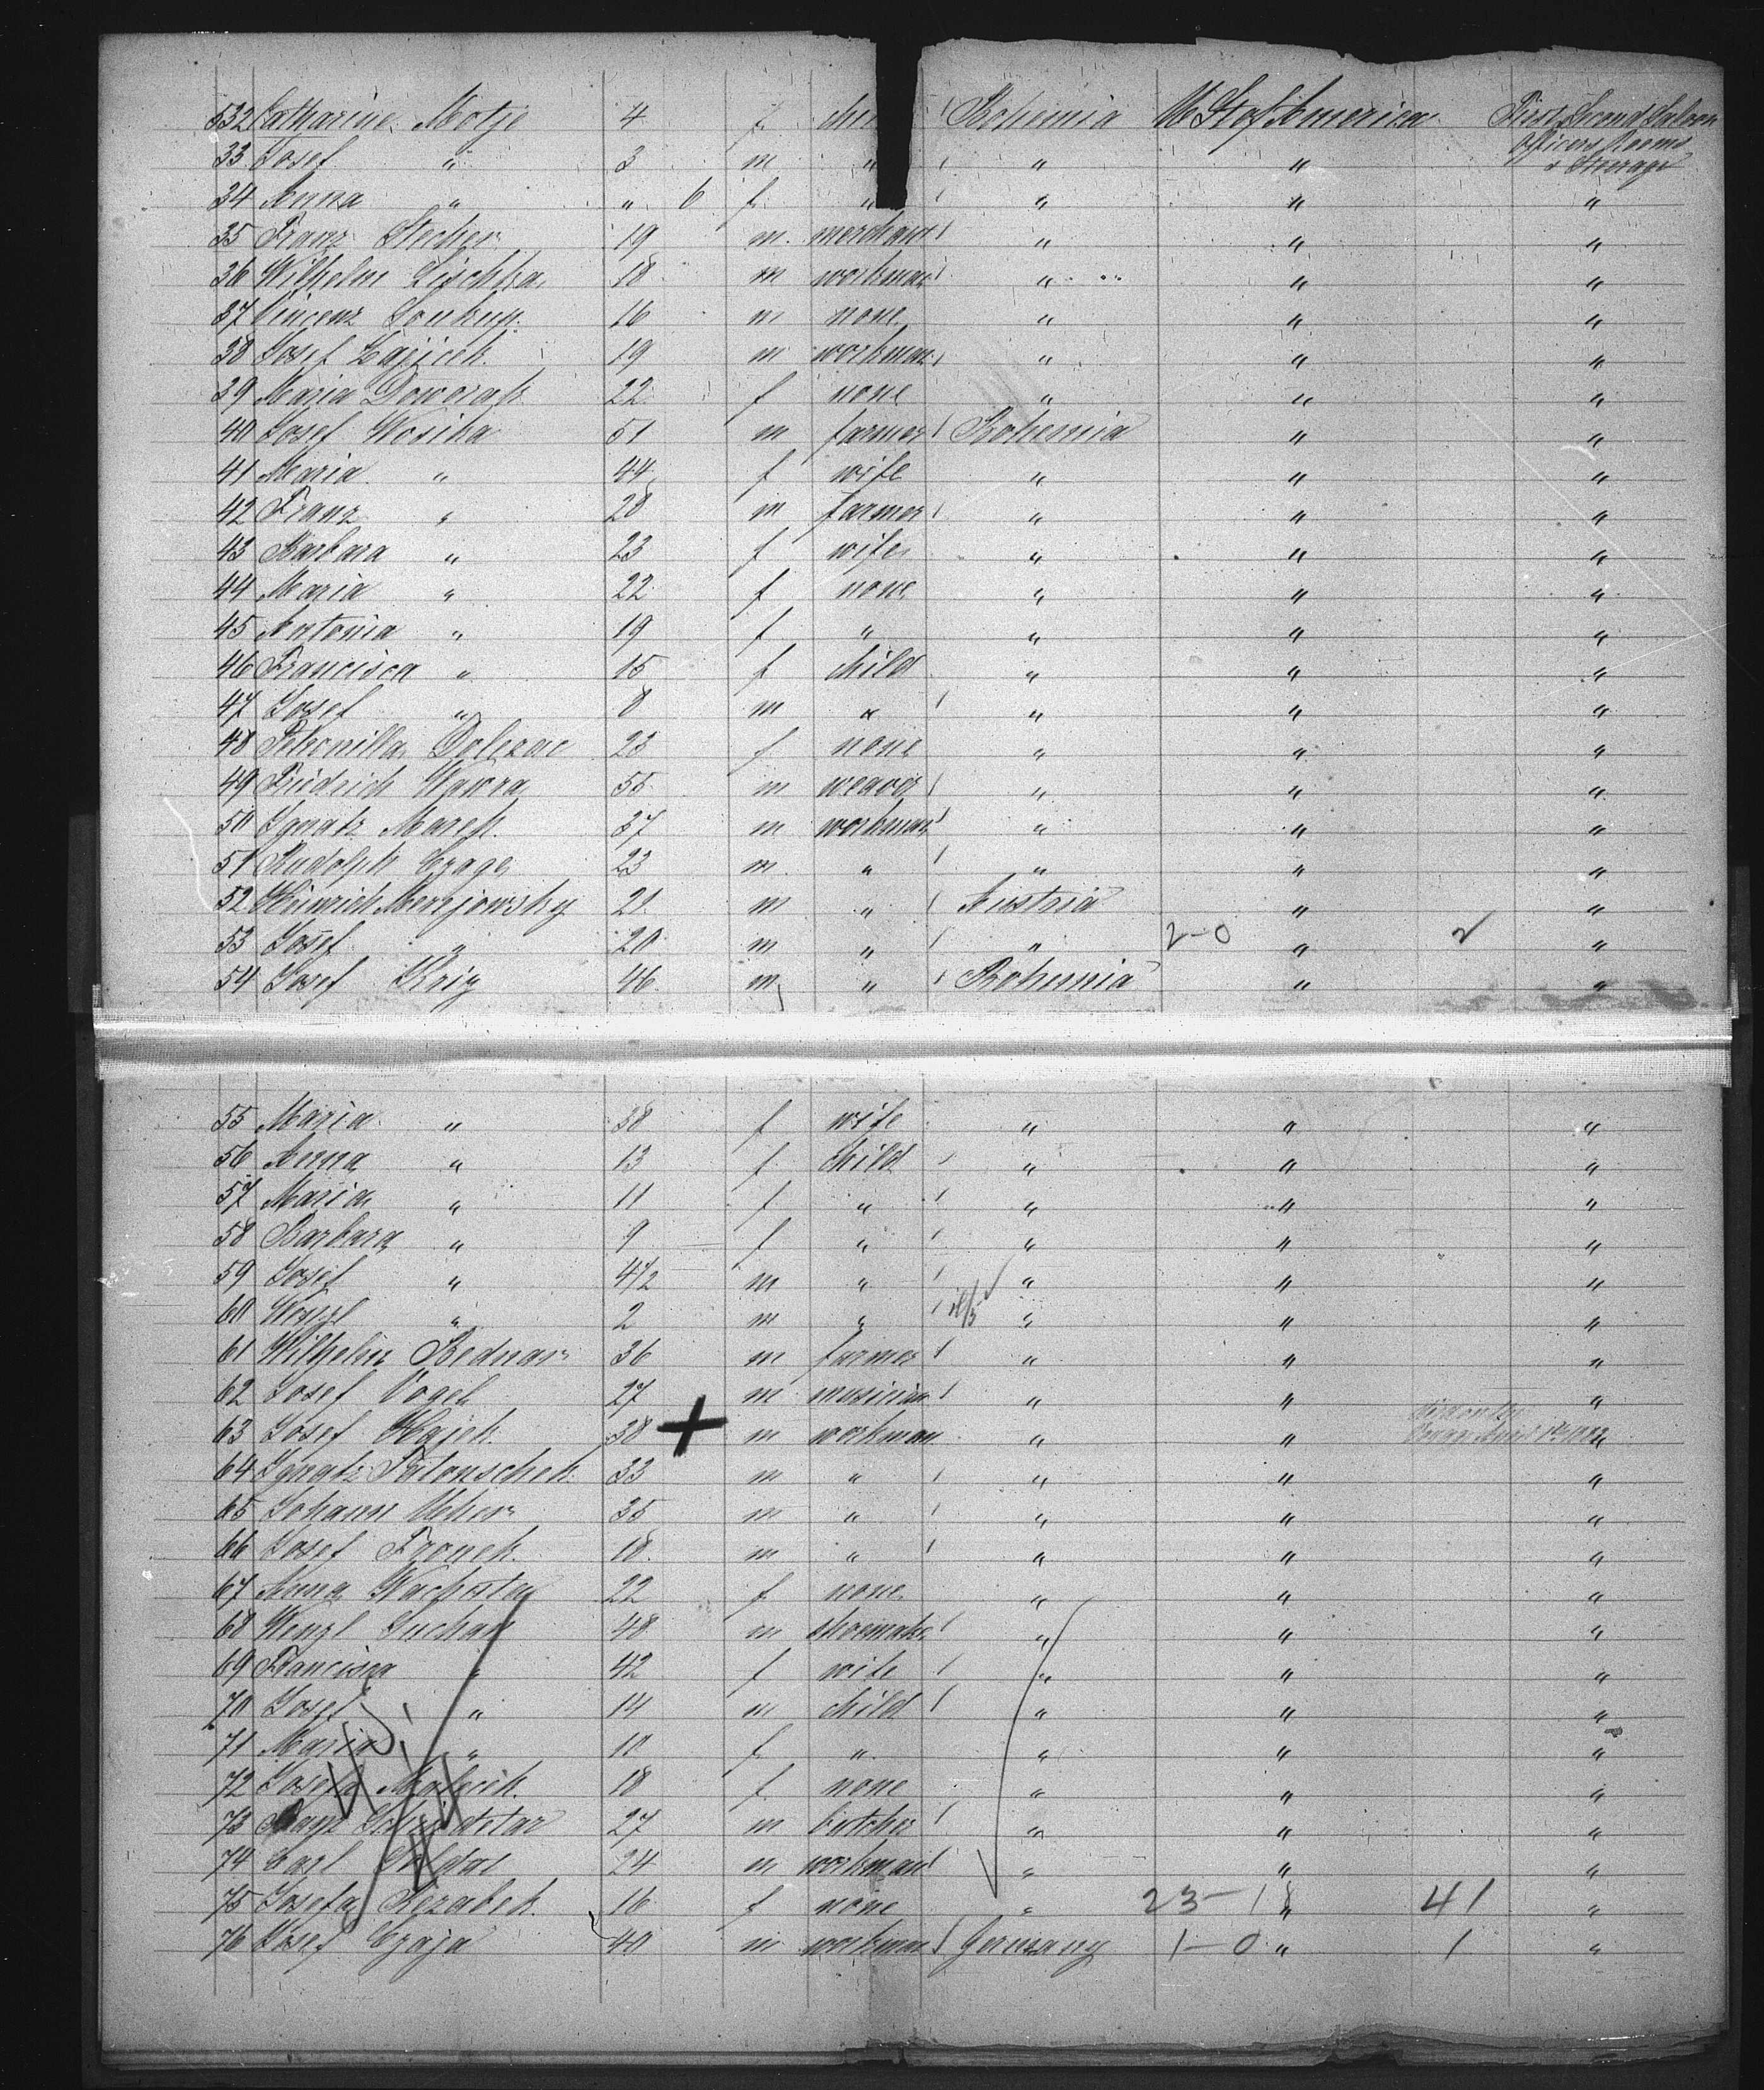 532 Catharine Motje 4 f Bohemia U St of America First, Second Saloon
Officers Rooms
& Steerage
33 Josef " 3 m " " "
34 Anna " " 6 f " " " "
35 Franz Stecher 19 m merchant " " "
36 Wilhelm Lischka 18 m workman " " "
37 Vincenz Soukup 16 m none " " "
38 Josef Zajicek 19 m workman " " "
39 Maria Doworak 22 f none " " "
40 Josef Wosika 51 m farmer Bohemia " "
41 Maria " 44 f wife " " "
42 Franz " 28 m farmer " " "
43 Barbara " 23 f wife " " "
44 Maria " 22 f none " " "
45 Antonia " 19 f " " " "
46 Francisca " 15 f child " " "
47 Josef " 8 m " " " "
48 Petronilla Dolezac 23 f none " " "
49 Friedrich Wawra 55 m weaver " " "
50 Ignatz Marek 37 m workman " " "
51 Rudolph 23 m " " " "
52 Heinrich 21 m " Austria " "
53 Josef " 20 m " " 2-0 " 2 "
54 Josef Krig 46 m " Bohemia " "
55 Maria " 38 f wife " " "
56 Anna " 13 f child " " "
57 Maria " 11 f " " " "
58 Barbara " 9 f " " " "
59 Josef " 4 1/2 m " " " "
60 Wenzl " 2 m " " " "
61 Wilhelm Bednar 36 m farmer " " "
62 Josef Vogel 27 m musician " " "
63 Josef Hajek 38 + m workman " " "
64 Ignatz 33 m " " " "
65 Johann Uher 35 m " " " "
66 Josef Fronek 18 m " " " "
67 Anna 22 f none " " "
68 Wenzl Suchan 48 m shoemaker " " "
69 Francisca " 42 f wife " " "
70 Josef " 14 m child " " "
71 Maria " 10 f " " " "
72 Josefa 18 f none " " "
73 27 m butcher " " "
74 Carl 24 m workman " " "
75 Josefa Rezabek 16 f none " 23-1 " 41 "
76 Josef Czaja 40 m workman Germany 1-0 " 1 "